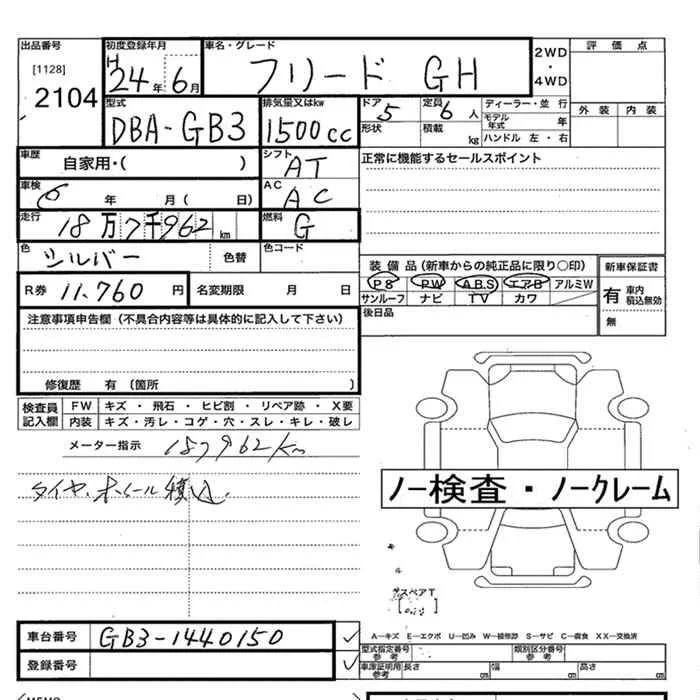 出品番号 初度登録年月 車名・グレード 2WD・4WD 評価点
[1128]
2104 H24年6月 フリード GH 外装 内装
型式 排気量又はkw ドア 5 定員 6 人 ディーラー・並行
DBA-GB3 1500cc 形状 積載 kg モデル年式 年
ハンドル 左・右
車歴 自家用・( ) シフト AT 正常に機能するセールスポイント
車検 6 年 月( 日) AC AC
走行 18万7千962 km 燃料 G
色 シルバー 色替 色コード
装備品(新車からの純正品に限り〇印) 新車保証書
R券 11,760 円 名変期限 月 日 PS PW A.B.S エアB アルミW 有 車内積込無効
サンルーフ ナビ TV カワ
注意事項申告欄(不具合内容等は具体的に記入して下さい) 後日品 無
修復歴 有(箇所 )
検査員記入欄 FW キズ・飛石・ヒビ割・リペア跡・X要
内装 キズ・汚レ・コゲ・穴・スレ・キレ・破レ
メーター指示 187962km
タイヤ、ホイール積込
ノー検査・ノークレーム
スペアT
車台番号 GB3-1440150
A―キズ E―エクボ U―凹み W―補修跡 S―サビ C―腐食 XX―交換済
登録番号 型式指定番号 参考 類別区分番号 参考
車庫証明用 参考 長さ cm 幅 cm 高さ cm
MEMO